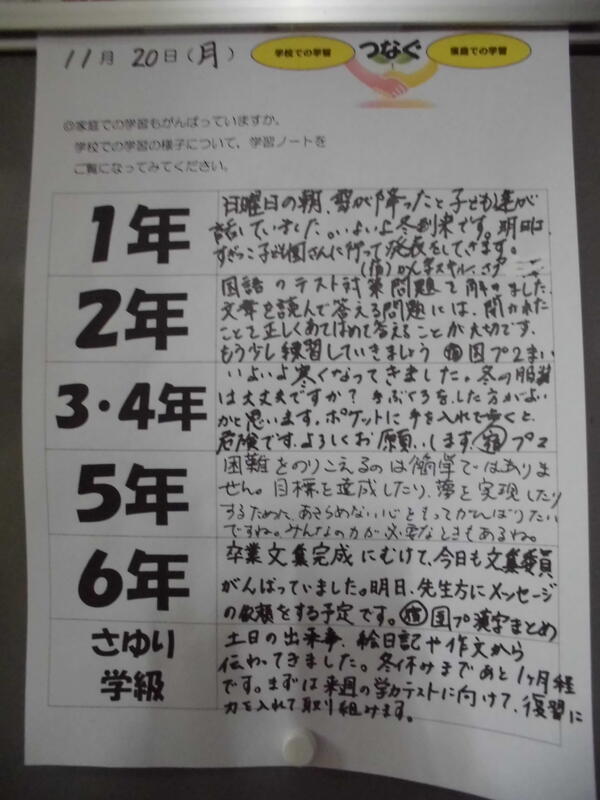 11月 20日(月)
学校での学習 つなぐ 家庭での学習
◎家庭での学習もがんばっていますか。
学校での学習の様子について、学習ノートを
ご覧になってみてください。
1年
日曜日の朝、雪が降ったと子ども達が
話していました。いよいよ冬到来です。明日は、
すぎっこ子ども園さんに行って発表をしてきます。
(宿)かん字スキル、さんすう
2年
国語のテスト対策問題を解きました。
文章を読んで答える問題には、聞かれた
ことを正しくあてはめて答えることが大切です。
もう少し練習していきましょう ㊟国プ2まい
3・4年
いよいよ寒くなってきました。冬の服装
は大丈夫ですか?手ぶくろをした方がよい
かと思います。ポケットに手を入れて歩くと、
危険です。よろしくお願いします。宿プ2
5年
困難をのりこえるのは簡単ではありま
せん。目標を達成したり、夢を実現したり
するために、あきらめない心をもってがんばりたい
ですね。みんなの力が必要なときもあるね。
6年
卒業文集完成にむけて、今日も文集委員
がんばっていました。明日、先生方にメッセージ
の依頼をする予定です。宿国プ漢字まとめ
さゆり
学級
土日の出来事、絵日記や作文から
伝わってきました。冬休みまであと1ヶ月程
です。まずは来週の学力テストに向けて、復習に
力を入れて取り組みます。